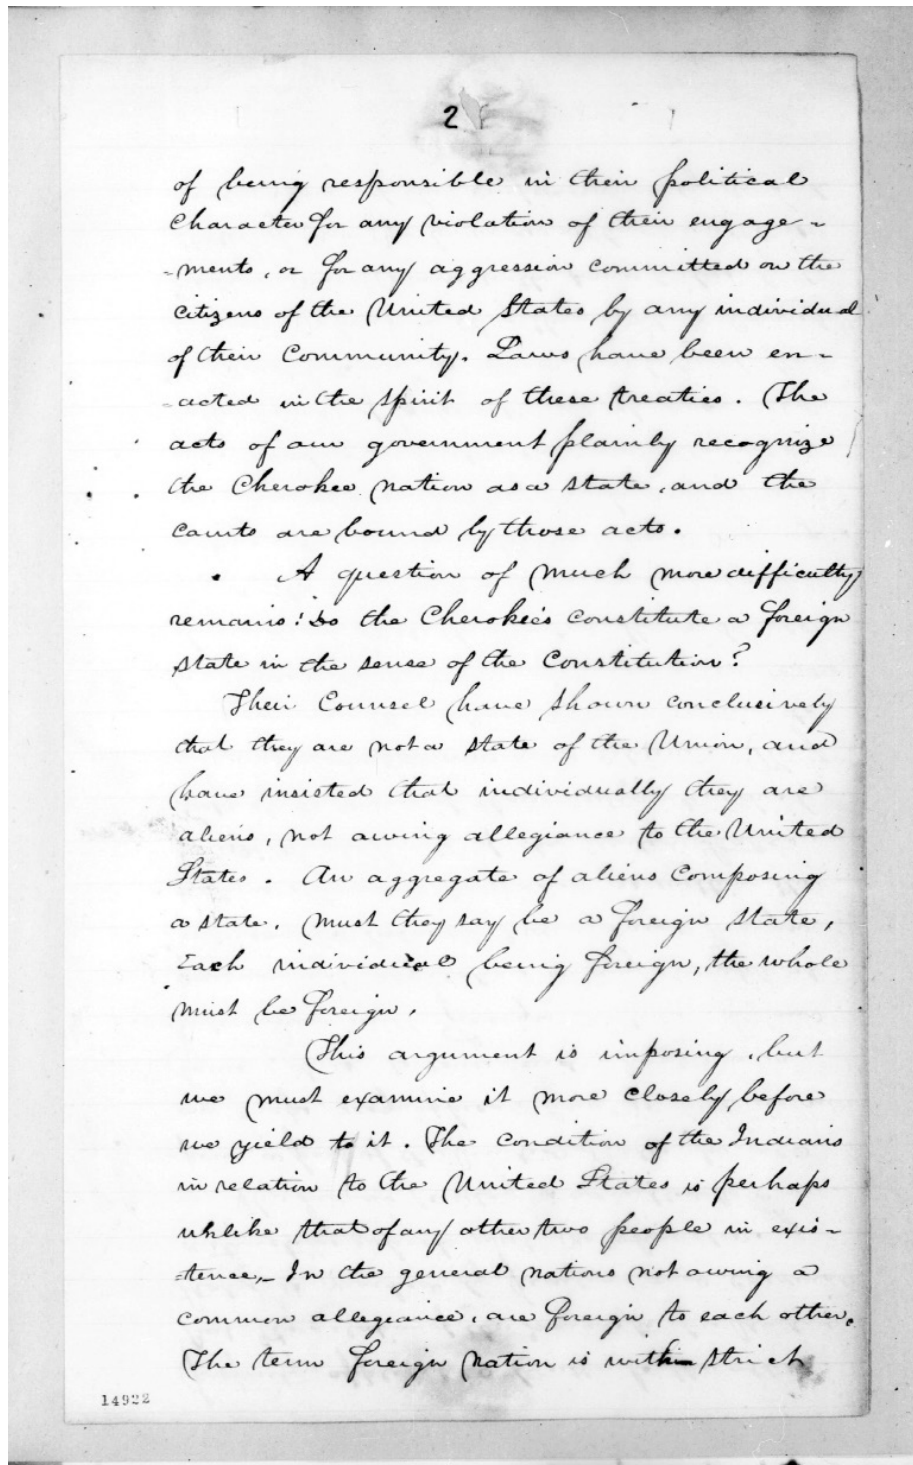 2
of being responsible in their political
character for any violation of their engage-
-ments, or for any aggression committed on the
citizens of the United States by any individual
of their Community. Laws have been en-
-acted in the spirit of these treaties. The
acts of our government plainly recognize
the Cherokee nation as a state, and the
courts are bound by those acts.
A question of much more difficulty
remains: Do the Cherokees constitute a foreign
state in the sense of the Constitution?
Their Counsel have shown conclusively
that they are not a state of the Union, and
have insisted that individually they are
aliens, not owing allegiance to the United
States. An aggregate of aliens composing
a state, must they say be a foreign state,
Each individual being foreign, the whole
must be foreign.
This argument is imposing, but
we must examine it more closely before
we yield to it. The condition of the Indians
in relation to the United States is perhaps
unlike that of any other two people in exis-
-tence,- In the general nations not owing a
common allegiance, are foreign to each other.
The term foreign nation is with strict
14922